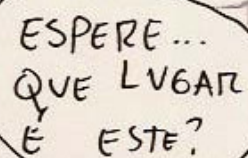 ESPERE...
QUE LUGAR
É ESTE?